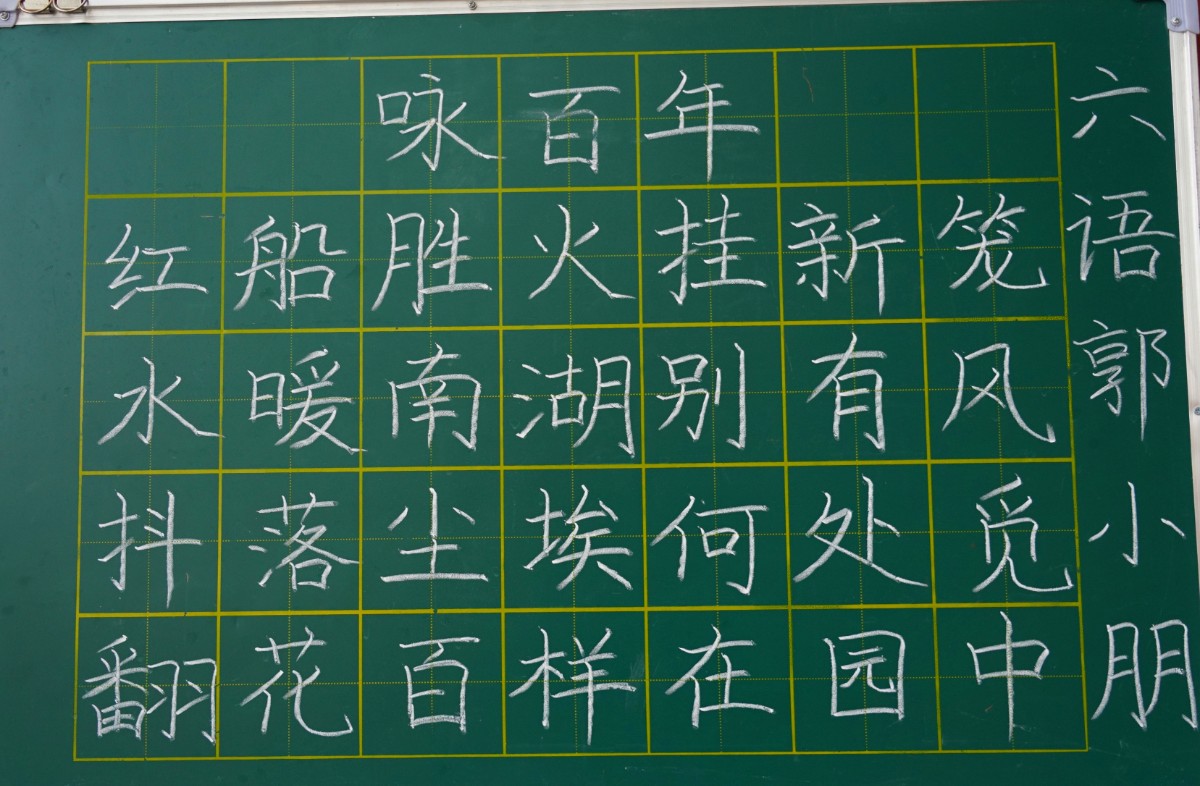 咏百年
红船胜火挂新笼
水暖南湖别有风
抖落尘埃何处觅
翻花百样在园中
六语郭小朋